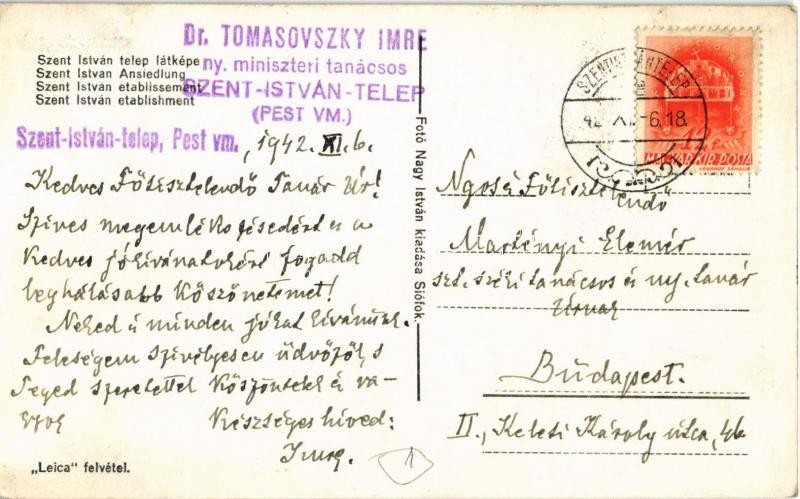 Szent István telep látképe
Szent Istvan Ansiedlung
Szent István etablissement
Szent István etablishment
Dr. TOMASOVSZKY IMRE
ny. miniszteri tanácsos
SZENT-ISTVÁN-TELEP
(PEST VM.)
Szent-István-telep, Pest vm., 1942. XI. 6.
Kedves Főtisztelendő Tanár Úr!
Szives megemlékezésedért és a
Kedves jókivánatokért fogadd
leghálásabb köszönetemet!
Neked is minden jókat kivánunk.
Feleségem szivélyesen üdvözöl, s
Téged szeretettel köszöntelek és va-
gyok
Készséges hived:
Imre.
„Leica" felvétel.
Fotó Nagy István kiadása Siófok.
42 XI -6. 18
12 f
MAGYAR KIR. POSTA
Ngos Főtisztelendő
Martényi Elemér
szt. széki tanácsos és ny. tanár
Úrnak
Budapest.
II., Keleti Károly utca, 46
1